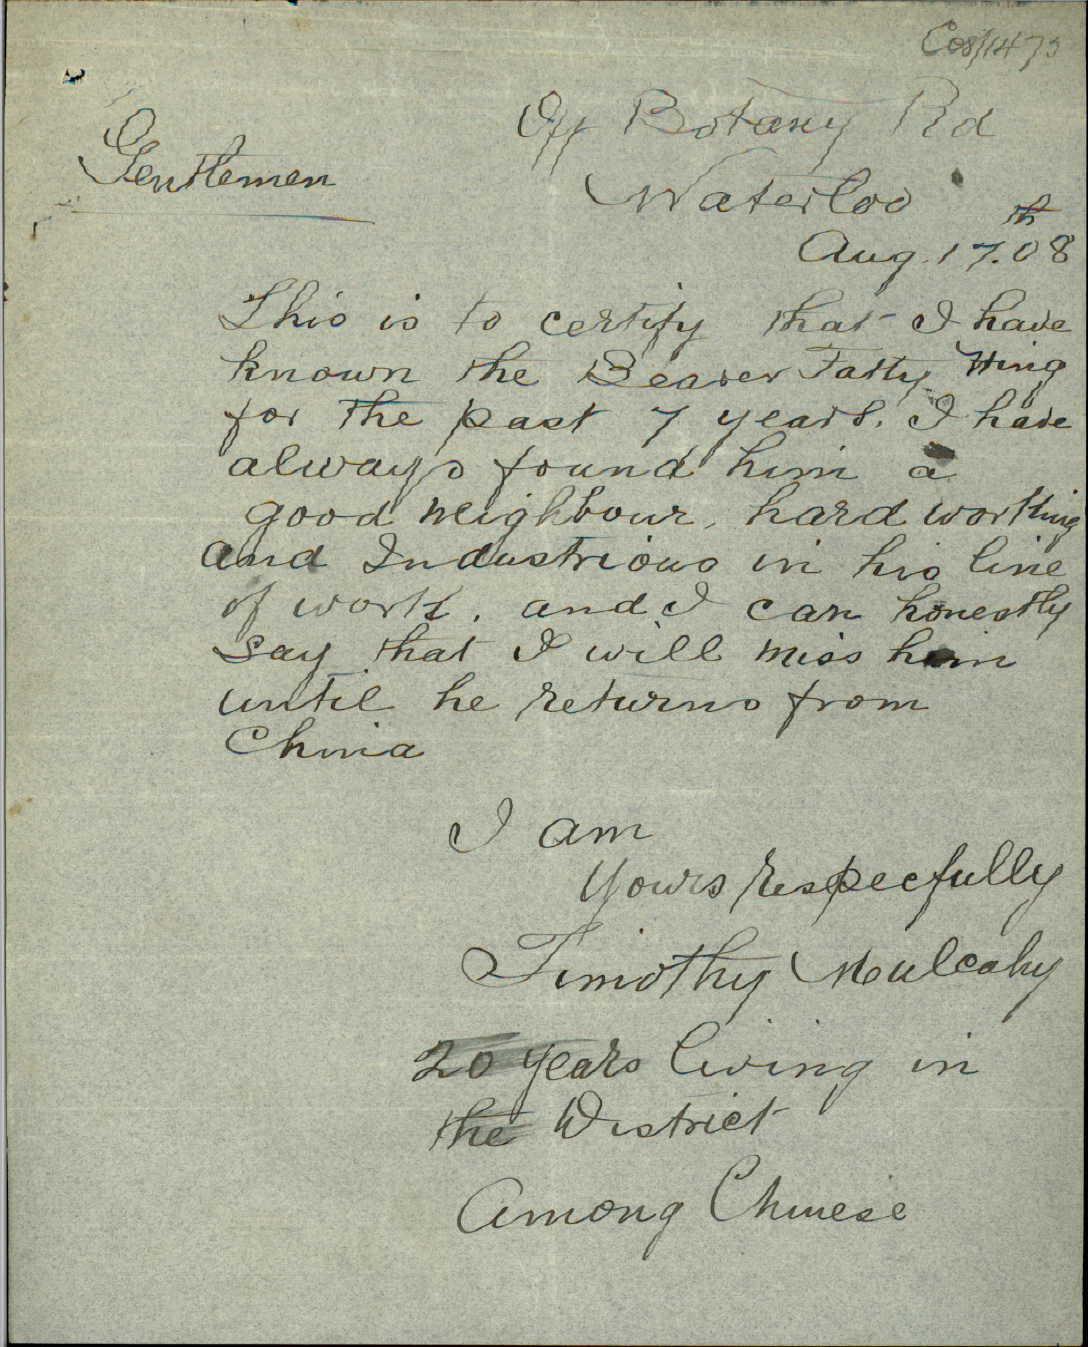 C08/1473
Off Botany Rd
Gentlemen
Waterloo
Aug. 17th. 08
This is to certify that I have
known the Bearer Fatty Wing
for the past 7 years. I have
always found him a
good neighbour, hard working
and Industrious in his line
of work. and I can honestly
say that I will miss him
until he returns from
China
I am
Yours respecfully
Timothy Mulcahy
20 years living in
the District
Among Chinese